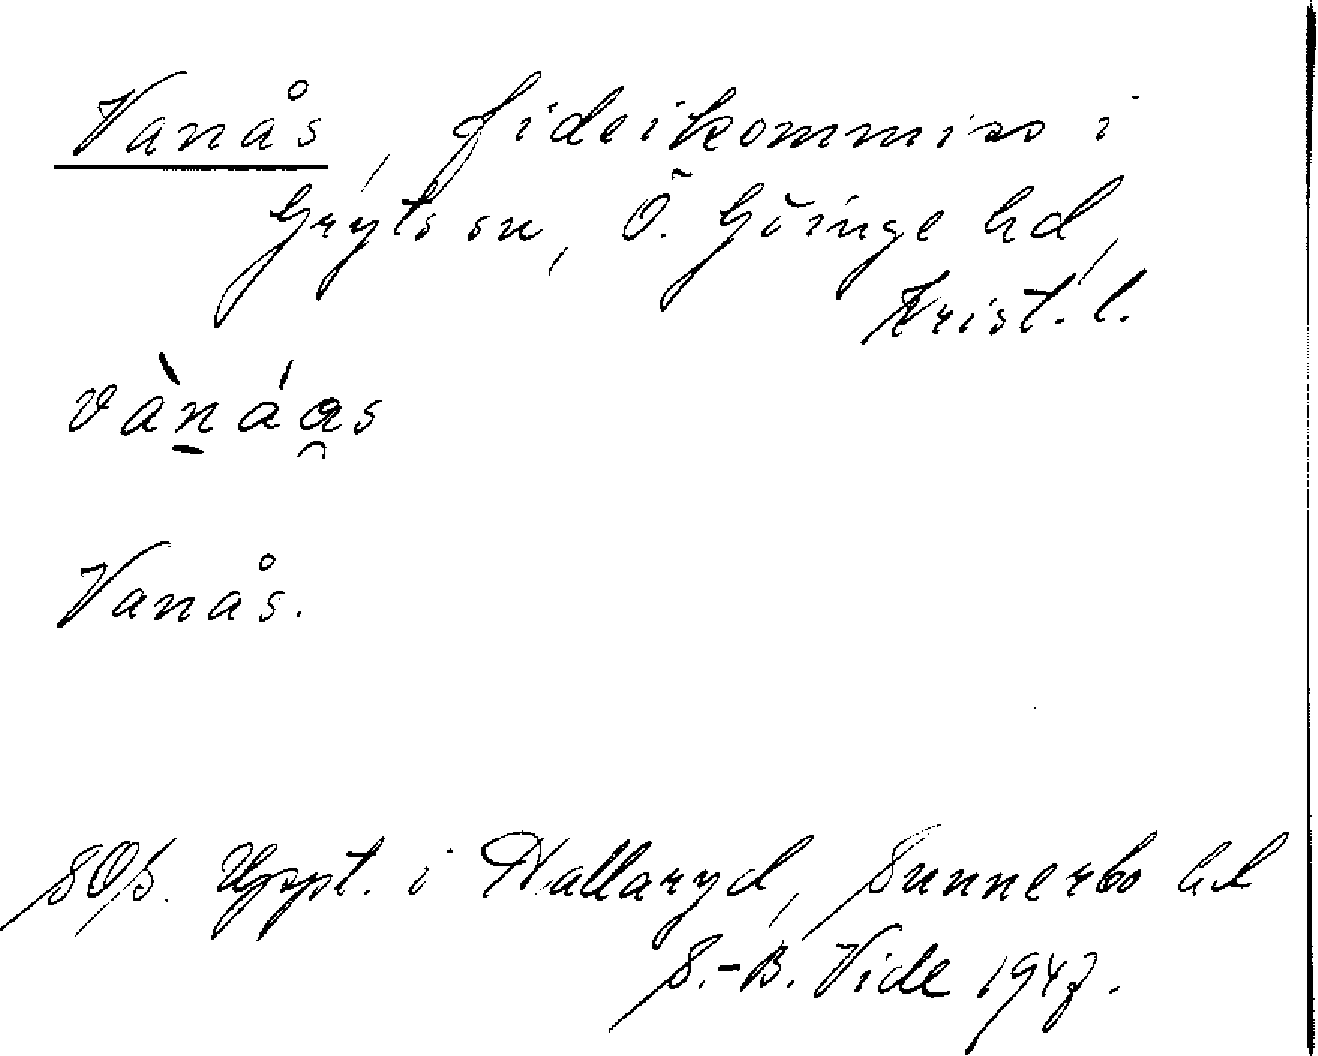 Vanås, fideikommiss i
Gryts sn, Ö. Göinge hd,
Krist. l.
vànáas
Vanås.
SOS. Uppt. i Hallaryd, Sunnerbo hd
S.-B. Vide 1947.